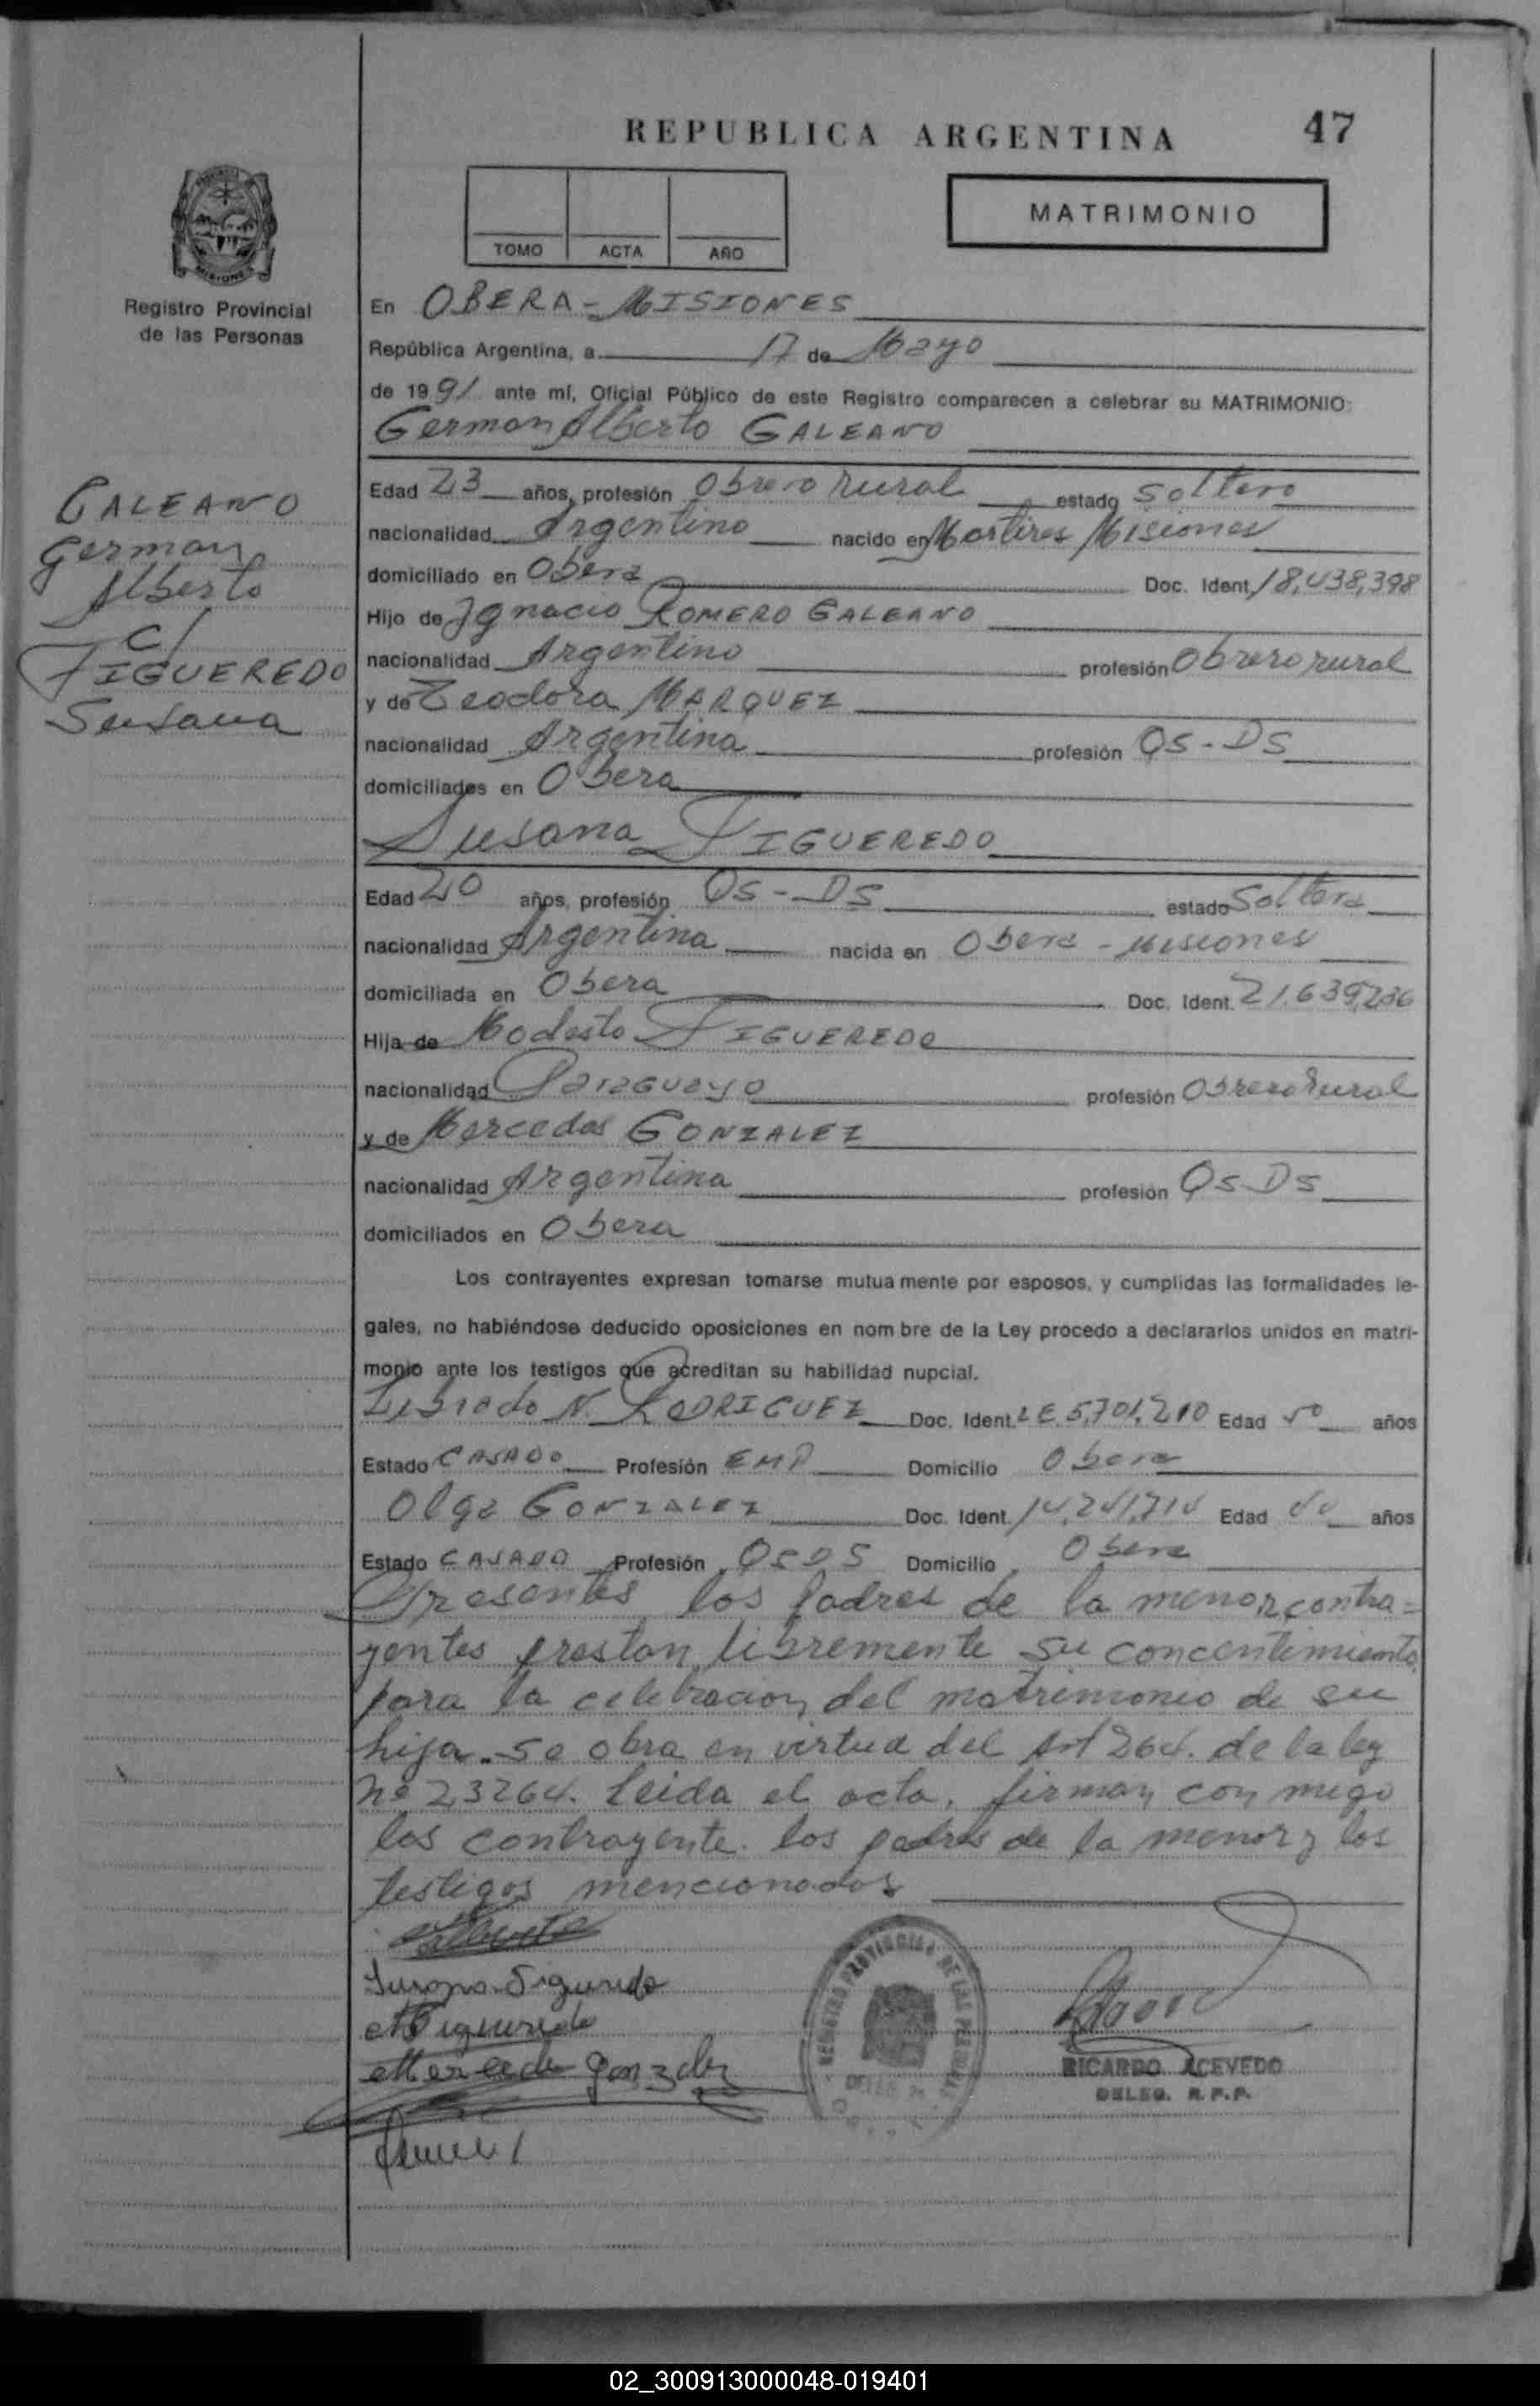 REPUBLICA ARGENTINA 47
MATRIMONIO
TOMO ACTA AÑO
MISIONES
Registro Provincial
de las Personas
En OBERA - MISIONES
República Argentina, a 17 de Mayo
de 1991 ante mí, Oficial Público de este Registro comparecen a celebrar su MATRIMONIO:
German Alberto GALEANO
GALEANO
German
Alberto
c/
FIGUEREDO
Susana
Edad 23 años, profesión Obrero rural estado soltero
nacionalidad Argentino nacido en Martires Misiones
domiciliado en Obera Doc. Ident. 18,438,398
Hijo de Ignacio ROMERO GALEANO
nacionalidad Argentino profesión Obrero rural
y de Teodora MARQUEZ
nacionalidad Argentina profesión QS-DS
domiciliados en Obera
Susana FIGUEREDO
Edad 20 años, profesión QS-DS estado Soltera
nacionalidad Argentina nacida en Obera - Misiones
domiciliada en Obera Doc. Ident. 21.639,236
Hija de Modesto FIGUEREDO
nacionalidad Paraguayo profesión Obrero Rural
y de Mercedes GONZALEZ
nacionalidad Argentina profesión Qs-Ds
domiciliados en Obera
Los contrayentes expresan tomarse mutua mente por esposos, y cumplidas las formalidades le-
gales, no habiéndose deducido oposiciones en nom bre de la Ley procedo a declararlos unidos en matri-
monio ante los testigos que acreditan su habilidad nupcial.
Librado N. RODRIGUEZ Doc. Ident. LE 5,701,210 Edad 50 años
Estado CASADO Profesión EMP Domicilio Obera
Olga GONZALEZ Doc. Ident. 14,241,714 Edad años
Estado CASADO Profesión QSDS Domicilio Obera
Presentes los padres de la menor contra=
yentes prestan libremente su concentimiento
para la celebracion del matrimonio de su
hija. se obra en virtud del Art 264. de la ley
nº 23264. leida el acta, firman con migo
los contrayente. los padres de la menor y los
testigos mencionados
Susana Figueredo
M Figueredo
Mercede Gonzalez
REGISTRO PROVINCIAL DE LAS PERSONAS
RICARDO ACEVEDO
DELEG. R.P.P.
02_300913000048-019401